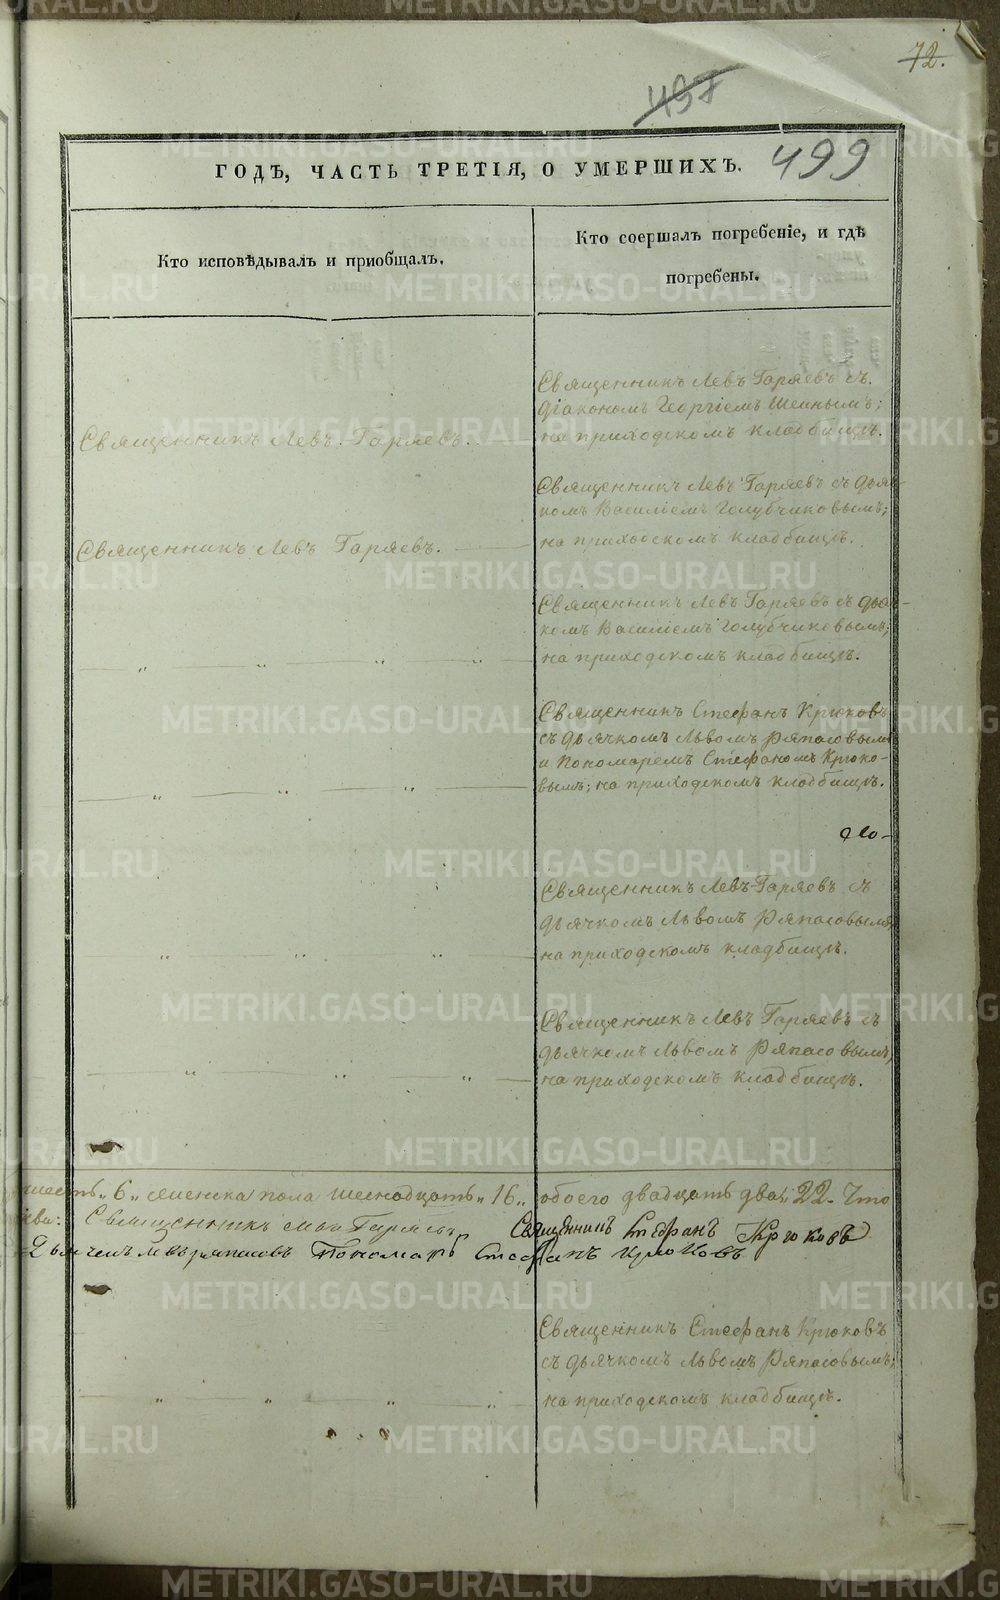 72.
497
499
ГОДѢ, ЧАСТЬ ТРЕТІЯ, О УМЕРШИХЪ.
Кто исповѣдывалъ и приобщалъ.
Кто соершалъ погребеніе, и гдѣ
погребены.
Священникъ Левъ Гаряевъ съ
діакономъ Георгіемъ
на приходскомъ кладбищѣ.
Священникъ Левъ Гаряевъ.
Священникъ Левъ Гаряевъ съ дьяч-
комъ Василіемъ Голубчиковымъ;
на приходскомъ кладбищѣ.
Священникъ Левъ Гаряевъ.
Священникъ Левъ Гаряевъ съ дьяч-
комъ Василіемъ Голубчиковымъ;
на приходскомъ кладбищѣ.
Священникъ Стефанъ Крюковъ
съ дьячкомъ Львомъ Ряпасовымъ
и Пономаремъ Стефаномъ Крюко-
вымъ; на приходскомъ кладбищѣ.
Священникъ Левъ Гаряевъ съ
дьячкомъ Львомъ Ряпасовымъ,
на приходскомъ кладбищѣ.
Священникъ Левъ Гаряевъ съ
дьячкомъ Львомъ Ряпасовымъ,
на приходскомъ кладбищѣ.
шесть „6„ женска пола шестнадцать „16„ обоего двадцать два „22„ Что
Священникъ Левъ Гаряевъ Священникъ Стефанъ Крюковъ
Дьячекъ Левъ Ряпасовъ Пономарь Стефанъ Крюковъ
Священникъ Стефанъ Крюковъ
съ дьячкомъ Львомъ Ряпасовымъ;
на приходскомъ кладбищѣ.
METRIKI.GASO-URAL.RU